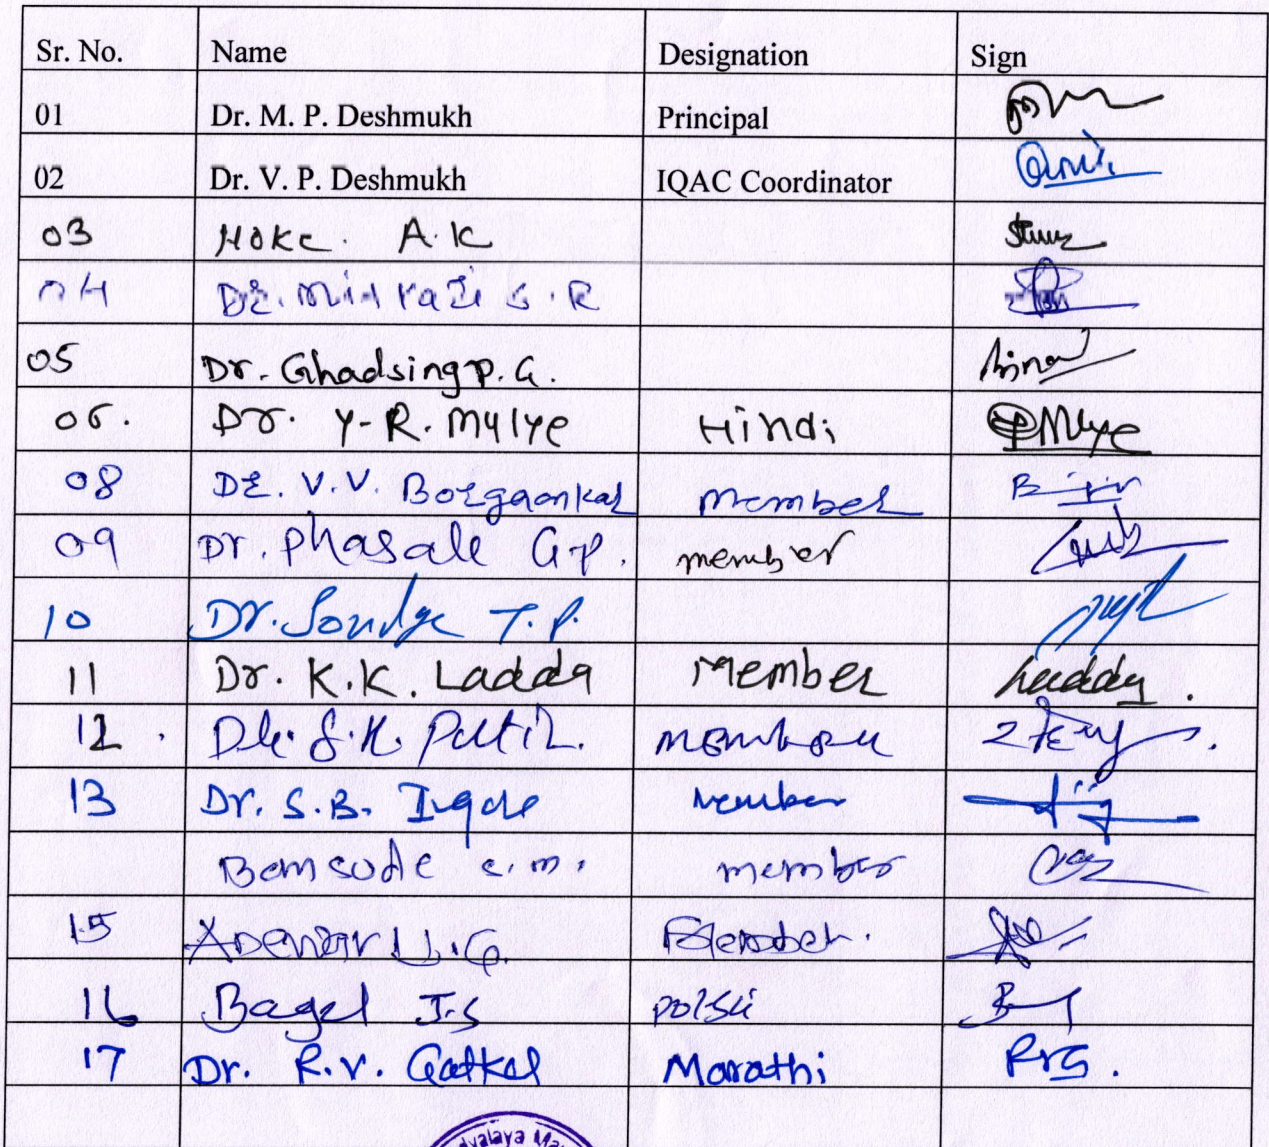 Sr. No. Name Designation Sign
01 Dr. M. P. Deshmukh Principal
02 Dr. V. P. Deshmukh IQAC Coordinator
03 Hoke. A.K
04 Dr. S.R
05 Dr. Ghadsing P. G.
06. Dr. Y-R. Mulye Hindi Mulye
08 Dr. V.V. Borgaonkar Member
09 Dr. Phasale G.P. member
10 Dr. T.P.
11 Dr. K.K. Ladda Member Ladda.
12. Dr. S.K. Patil. member
13 Dr. S.B. Ingole member
Bansode c.m. member
15 U.G.
16 Bagel I.S polsci
17 Dr. R.V. Gatkal Marathi RVG.